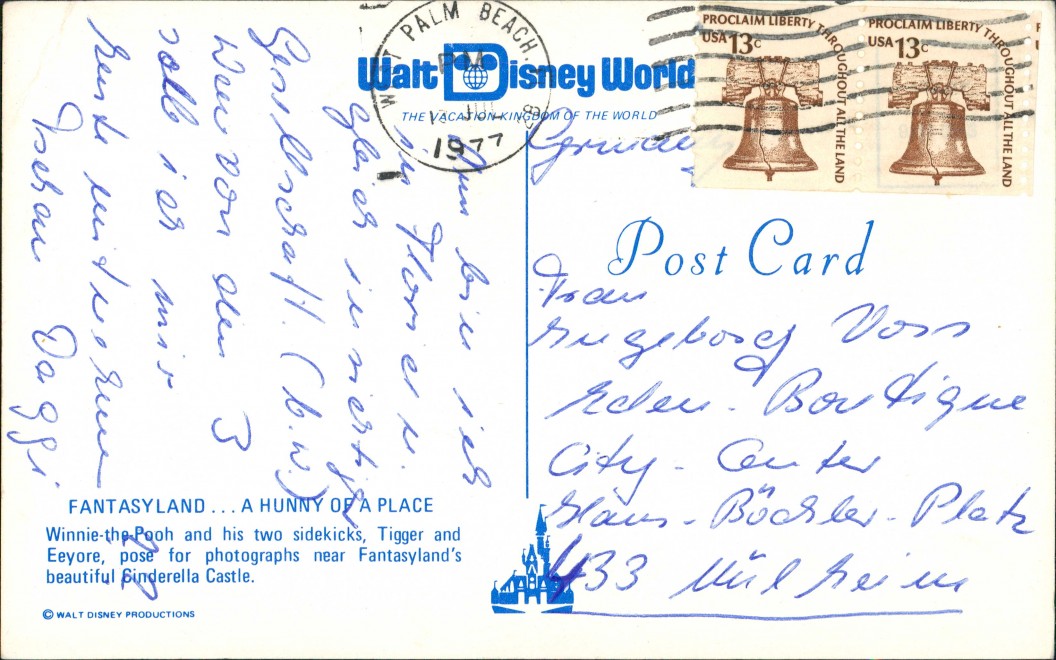 Walt Disney World
THE VACATION KINGDOM OF THE WORLD
PALM BEACH,
PM
1977
PROCLAIM LIBERTY THROUGHOUT ALL THE LAND
USA 13c
PROCLAIM LIBERTY THROUGHOUT ALL THE LAND
USA 13c
Post Card
Nun bin ich
in Florida u.
gleich in richtiger
Gesellschaft. (b.w.)
Wen von den 3
soll ich mir
heute mitnehmen
Tschau Daggi
Germany
Frau
Ingeborg Voss
Eden-Boutique
City-Center
Hans-Böckler-Platz
433 Mülheim
FANTASYLAND... A HUNNY OF A PLACE
Winnie-the-Pooh and his two sidekicks, Tigger and
Eeyore, pose for photographs near Fantasyland's
beautiful Cinderella Castle.
© WALT DISNEY PRODUCTIONS